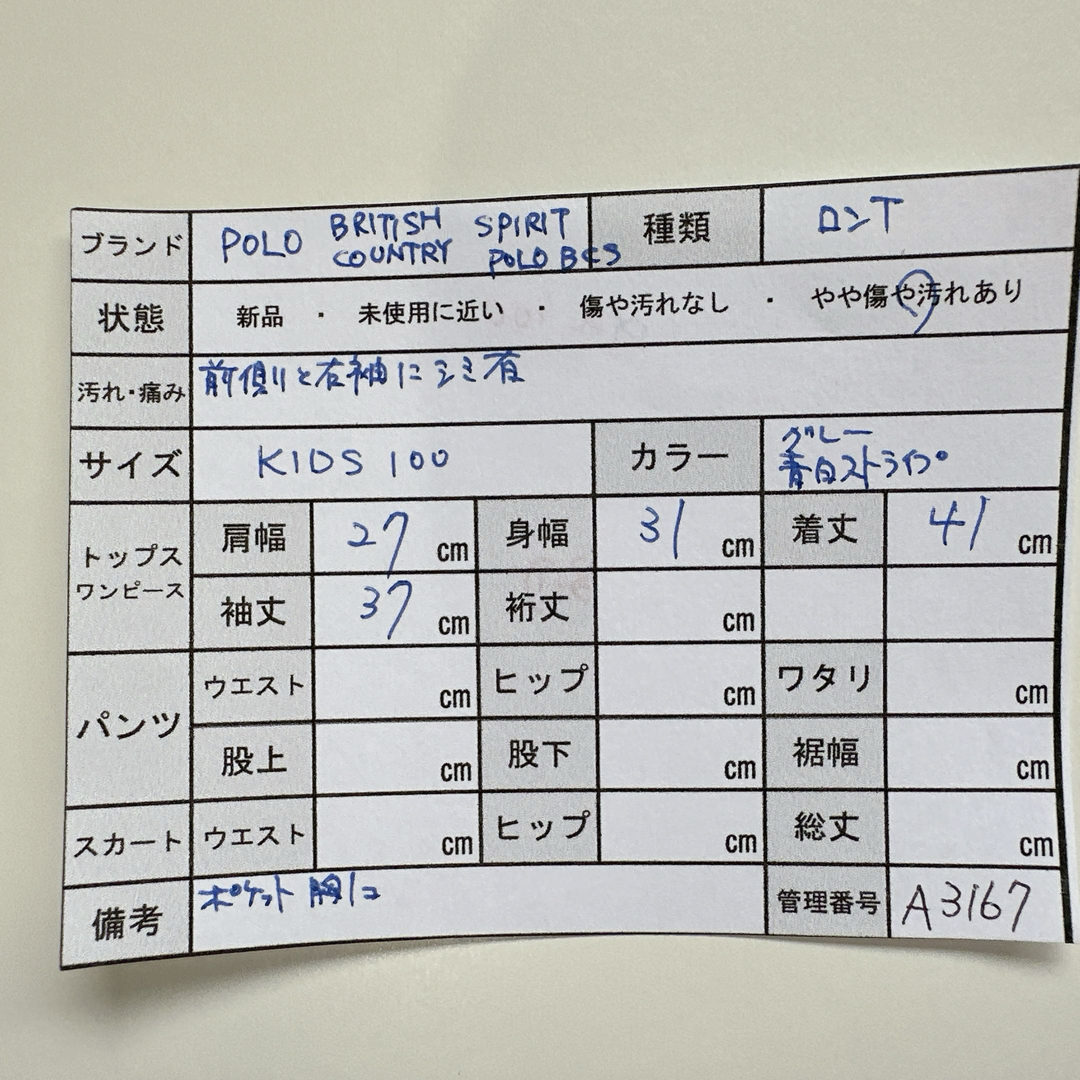 ブランド POLO BRITISH COUNTRY SPIRIT POLO BCS 種類 ロンT
状態 新品 ・ 未使用に近い ・ 傷や汚れなし ・ やや傷や汚れあり
汚れ・痛み 前側と右袖にシミ有
サイズ KIDS 100 カラー グレー 青白ストライプ
トップス ワンピース 肩幅 27 cm 身幅 31 cm 着丈 41 cm
袖丈 37 cm 裄丈 cm
パンツ ウエスト cm ヒップ cm ワタリ cm
股上 cm 股下 cm 裾幅 cm
スカート ウエスト cm ヒップ cm 総丈 cm
備考 ポケット 胸1コ 管理番号 A3167